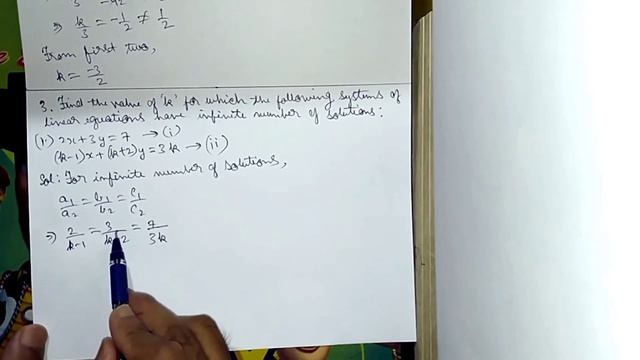 ⇒ k/3 = -1/2 ≠ 1/2
From first two,
k = -3/2
3. Find the value of 'k' for which the following systems of
linear equations have infinite number of solutions:
(i) 2x+3y=7 → (i)
(k-1)x+(k+2)y=3k → (ii)
Sol: For infinite number of solutions,
a₁/a₂ = b₁/b₂ = c₁/c₂
⇒ 2/k-1 = 3/k+2 = 7/3k